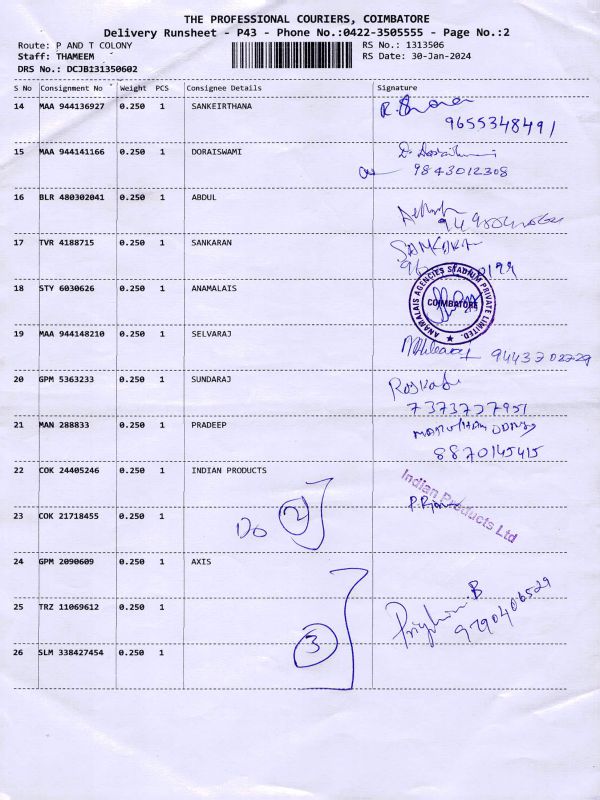 THE PROFESSIONAL COURIERS, COIMBATORE
Delivery Runsheet - P43 - Phone No.:0422-3505555 - Page No.:2
Route: P AND T COLONY
RS No.: 1313506
Staff: THAMEEM
RS Date: 30-Jan-2024
DRS No.: DCJB131350602
S No Consignment No Weight PCS Consignee Details Signature
14 MAA 944136927 0.250 1 SANKEIRTHANA
9655348491
15 MAA 944141166 0.250 1 DORAISWAMI
9843012308
16 BLR 480302041 0.250 1 ABDUL
17 TVR 4188715 0.250 1 SANKARAN
SANKARA
18 STY 6030626 0.250 1 ANAMALAIS
ANAMALAIS AGENCIES STADIUM PRIVATE LIMITED.
COIMBATORE
19 MAA 944148210 0.250 1 SELVARAJ
20 GPM 5363233 0.250 1 SUNDARAJ
7373737951
21 MAN 288833 0.250 1 PRADEEP
8870145415
22 COK 24405246 0.250 1 INDIAN PRODUCTS
Indian Products Ltd
23 COK 21718455 0.250 1
Do 2
24 GPM 2090609 0.250 1 AXIS
25 TRZ 11069612 0.250 1
9790406529
26 SLM 338427454 0.250 1
3